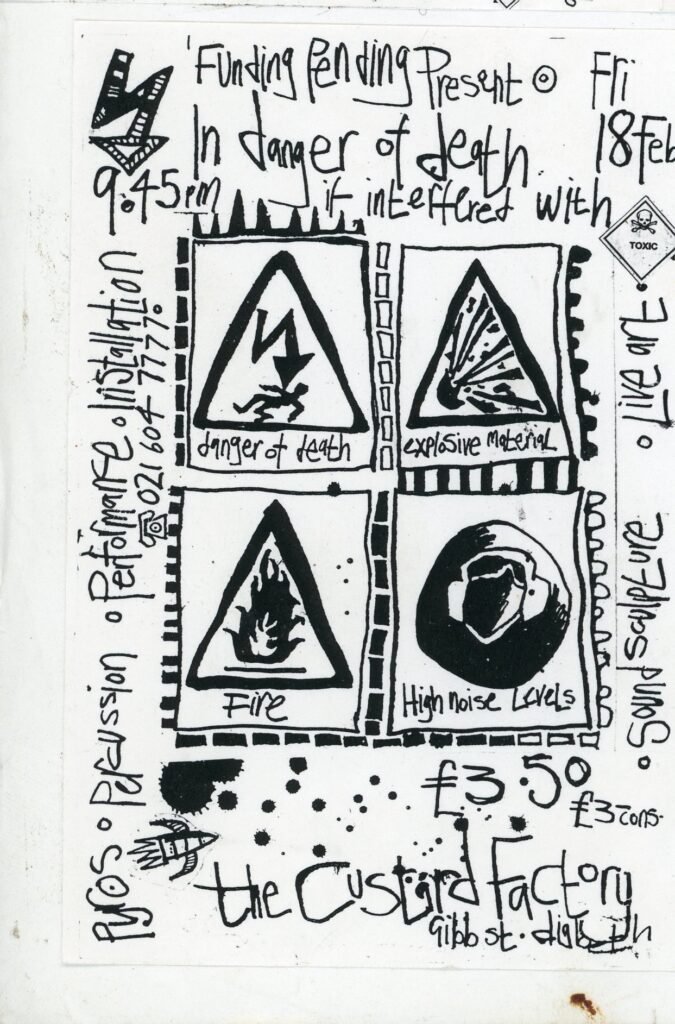 'Funding Pending Present
Fri
18 Feb
In danger of death
9.45pm
if inteffered with
TOXIC
danger of death
explosive Material
Fire
High noise Levels
Pyros • Percussion • Performance • Installation
021 604 7777.
• Sound sculpture • Live art •
£3.50
£3 cons.
the Custard Factory
Gibb st. digbeth